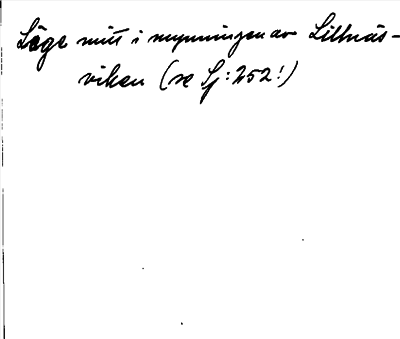 Läge mitt i mynningen av Lillnäs-
viken (se Sj:252!)